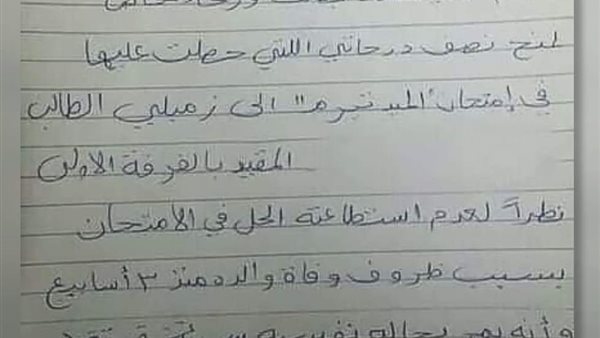 لمنح نصف درجاتي اللتي حصلت عليها
في إمتحان "الميدتيرم" الى زميلي الطالب
المقيد بالفرقة الأولى
نظراً لعدم استطاعته الحل في الامتحان
بسبب ظروف وفاة والده منذ ٣ أسابيع
وأنه يمر بحالة نفسية